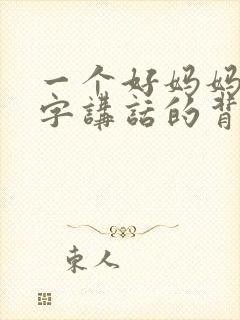 一个好妈妈
字講話的背
東人